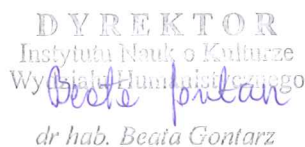 DYREKTOR
Instytutu Nauk o Kulturze
Wydziału Humanistycznego
Beata Gontarz
dr hab. Beata Gontarz